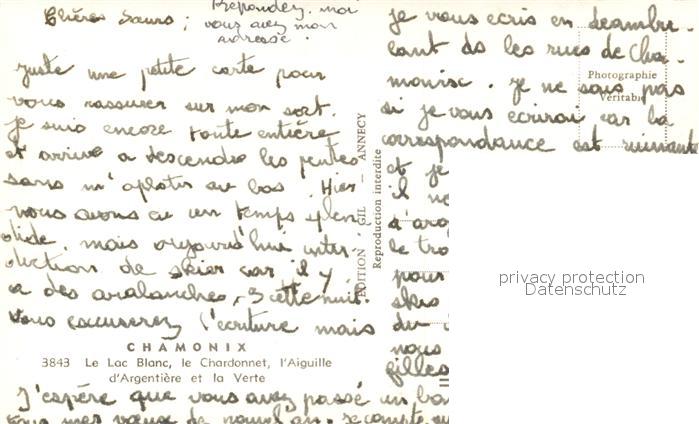 Chères Sœurs ;
Répondez-moi
vous avez mon
adresse.
Juste une petite carte pour
vous rassurer sur mon sort.
Je suis encore toute entière
et arrive a descendre les pentes
sans m'aplatir au bas. Hier
nous avons eu un temps splen
dide. mais aujourd'hui inter-
diction de skier car il y
a des avalanches, 3 cette nuit.
Vous excuserez l'écriture mais
CHAMONIX
3843 Le Lac Blanc, le Chardonnet, l'Aiguille
d'Argentière et la Verte
J'espère que vous avez passé un bo
mes vœux de nouvel'an. Je compte
EDITION GIL - ANNECY
Reproduction interdite
je vous écris en deambu-
lant ds les rues de Cha-
monix. je ne sais pas
si je vous ecrirai car la
correspondance est ruinante
et je
il n
d'arg
le tro
pour
skis
du
nous
gilles
Photographie
Véritable
privacy protection
Datenschutz